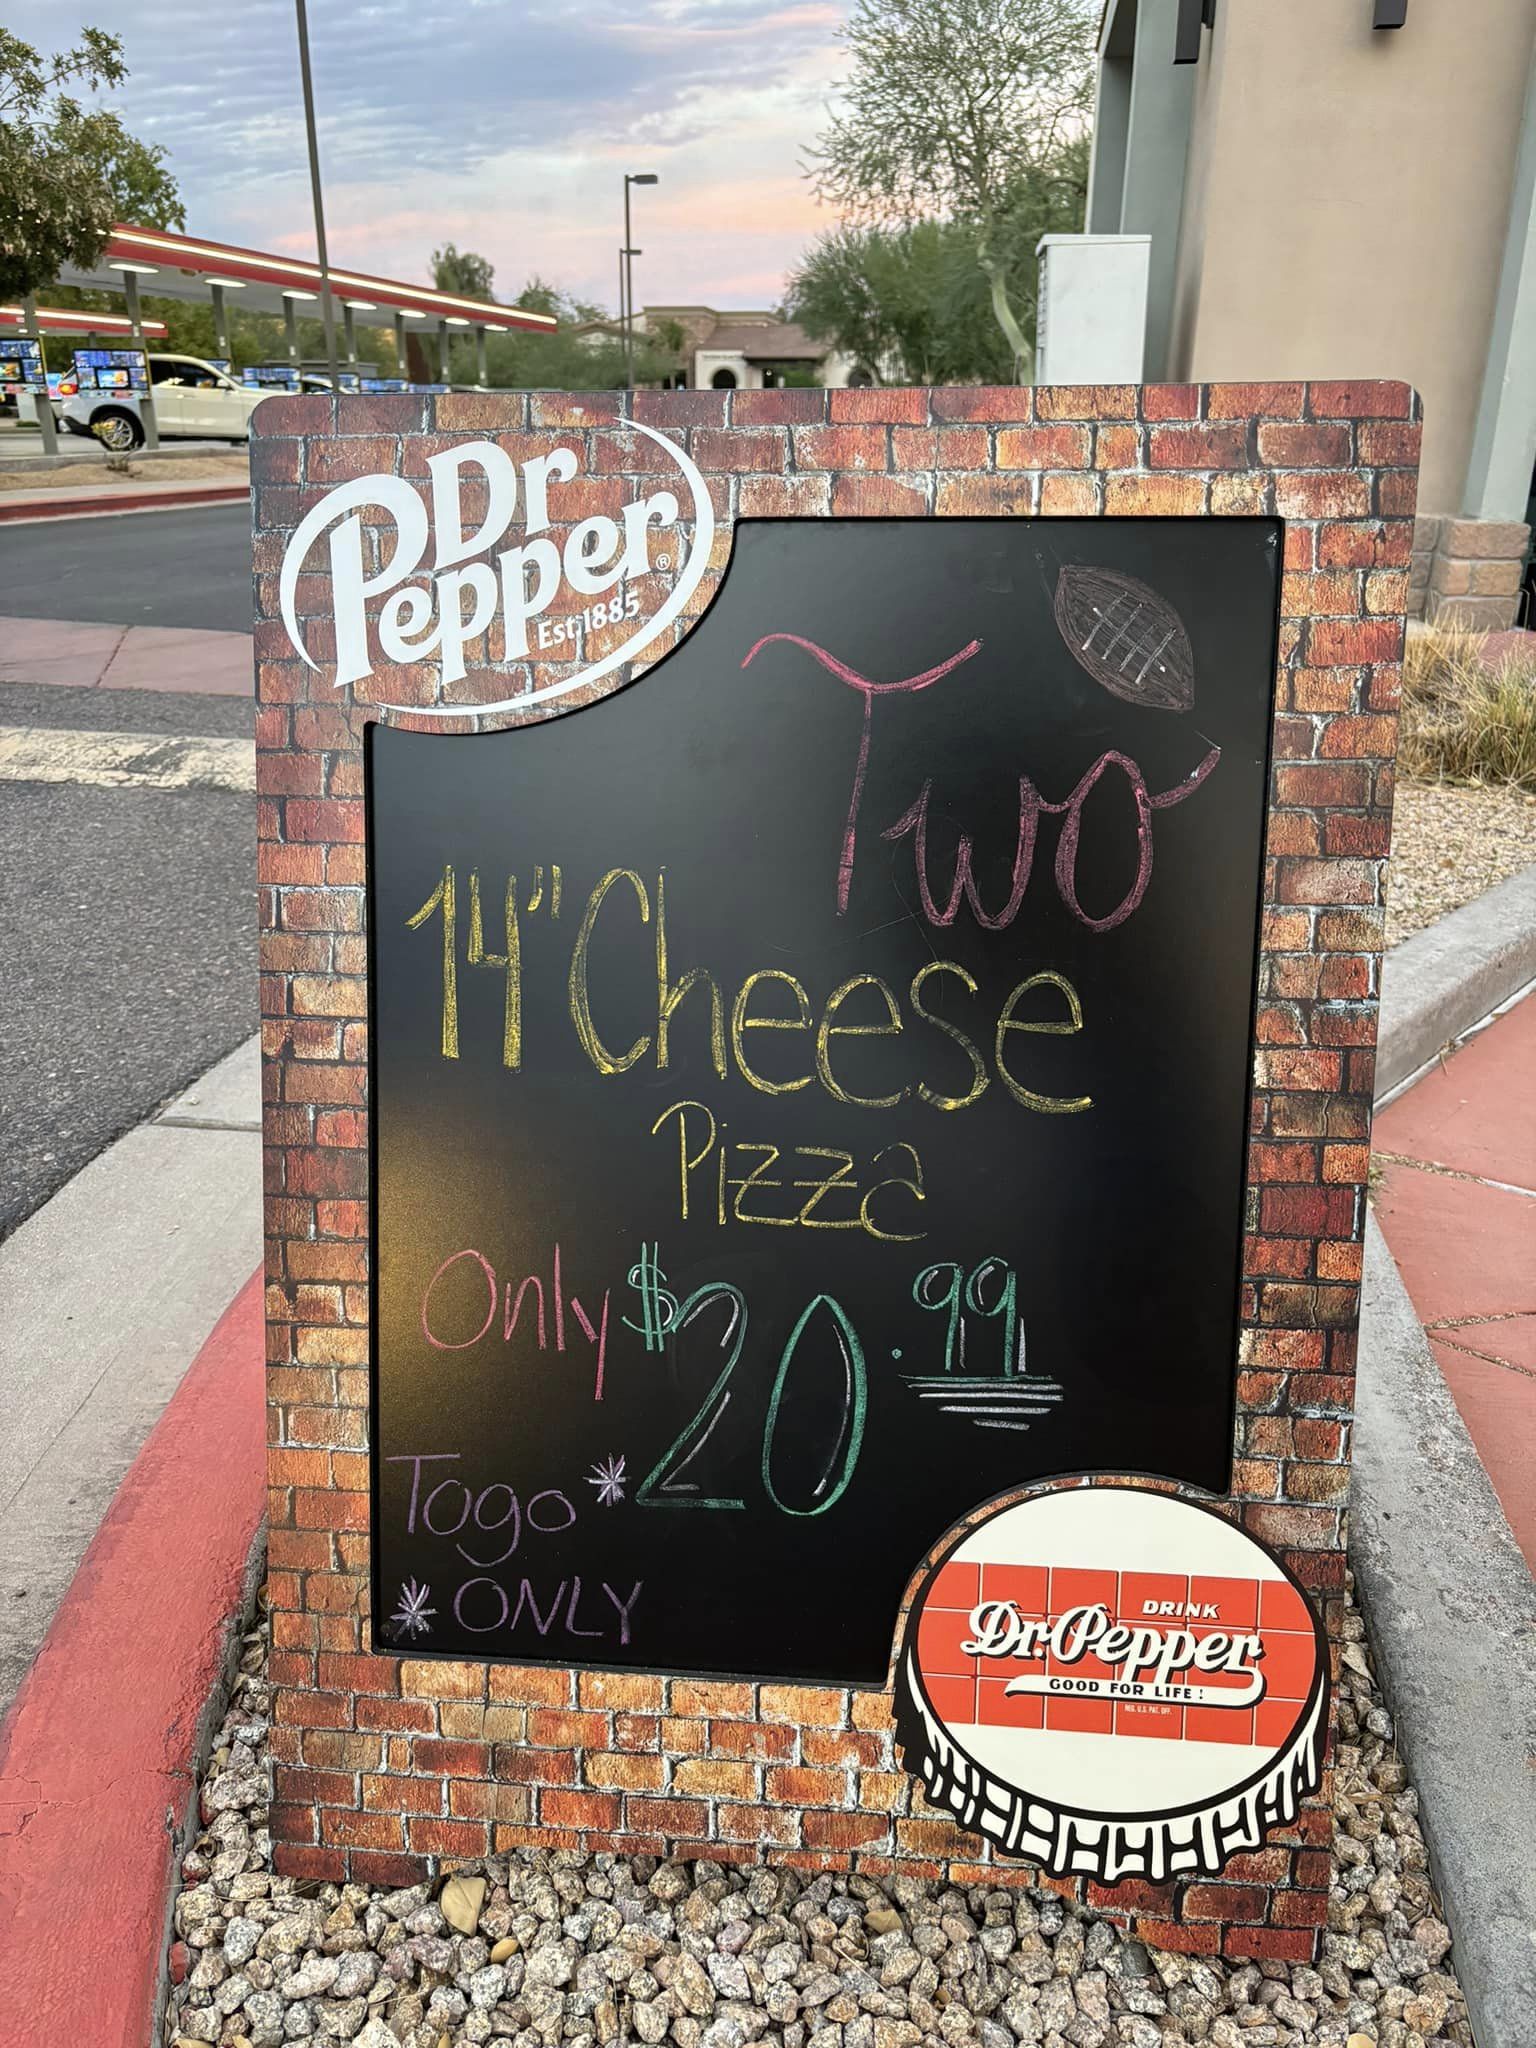 Dr
Pepper®
Est. 1885
Two
14" Cheese
Pizza
Only $20.99
Togo *
* ONLY
DRINK
Dr. Pepper
GOOD FOR LIFE!
REG. U.S. PAT. OFF.